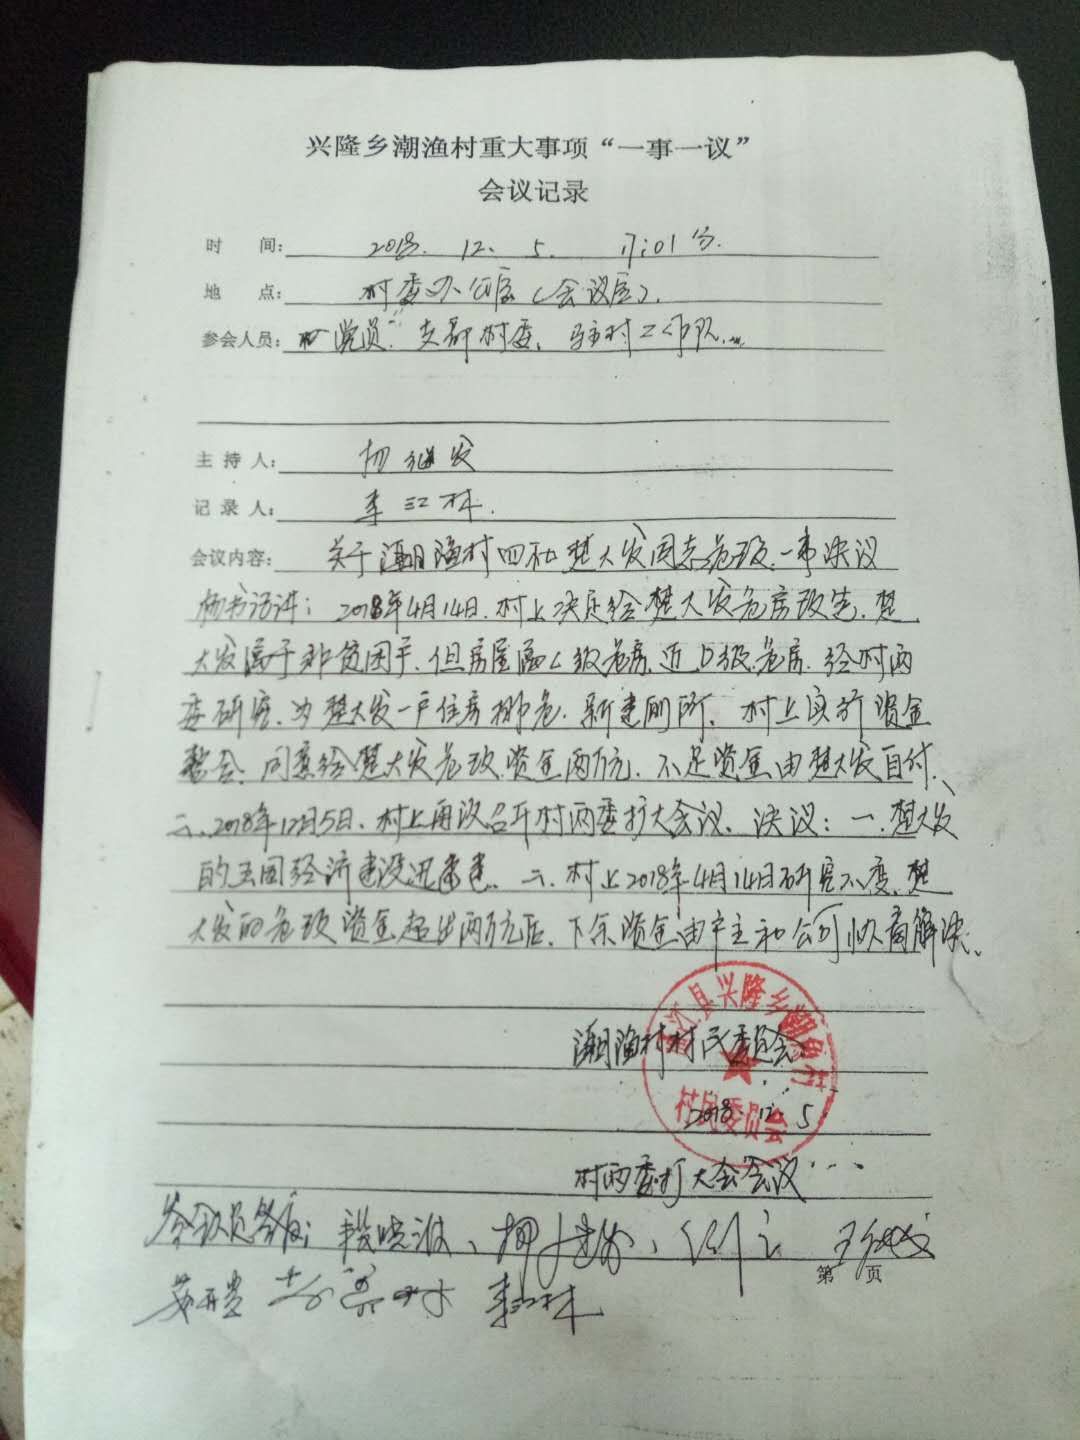 兴隆乡潮渔村重大事项“一事一议”
会议记录
时 间： 2018. 12. 5. 17:01分.
地 点： 村委办公室（会议室）.
参会人员： 党员. 支部村委、驻村工作队...
主 持 人： 杨继发
记 录 人： 李江林.
会议内容： 关于潮渔村四社楚大发同志危改一事决议
杨书记讲：2018年4月14日.村上决定给楚大发危房改造.楚
大发属于非贫困户.但房屋属C级危房.近D级危房.经村两
委研究.为楚大发一户住房排危.新建厕所.村上实行资金
整合.同意给楚大发危改资金两万元.不足资金由楚大发自付.
二、2018年12月5日.村上再次召开村两委扩大会议、决议：一.楚大发
的 经济建设 二.村上2018年4月14日研究不变.楚
大发的危改资金超出两万元后.下余资金由户主和公司协商解决.
潮渔村村民委员会
2018 12. 5
江县兴隆乡潮渔村
村民委员会
村两委扩大会会议...
参会人员签名： 段晓波、
李江林
第 页